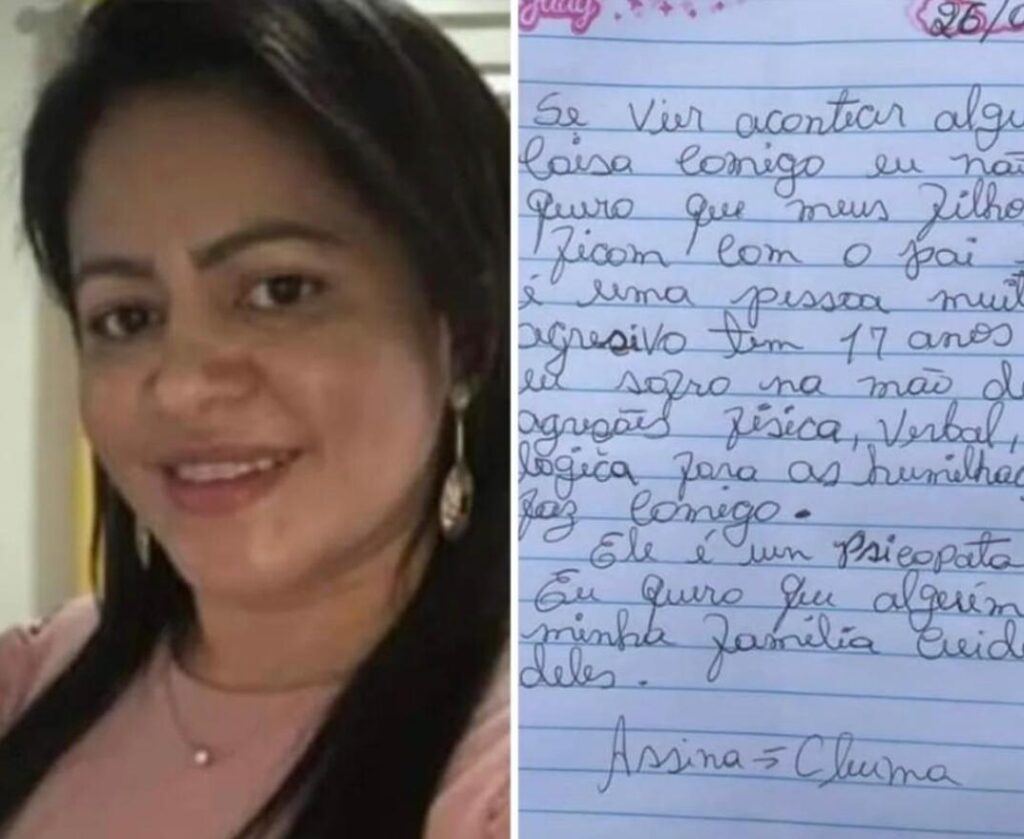 Judy
26/0
Se Vier acontecer algu
Coisa Comigo eu não
quero que meus filho
ficam com o pai
é uma pessoa muit
agresivo tem 17 anos
eu sofro na mão de
agreções física, Verbal,
lógica fora as humilhaç
faz Comigo.
Ele é um Psicopata
Eu quero que alguém
minha família Cuid
deles.
Assina = Cleuma